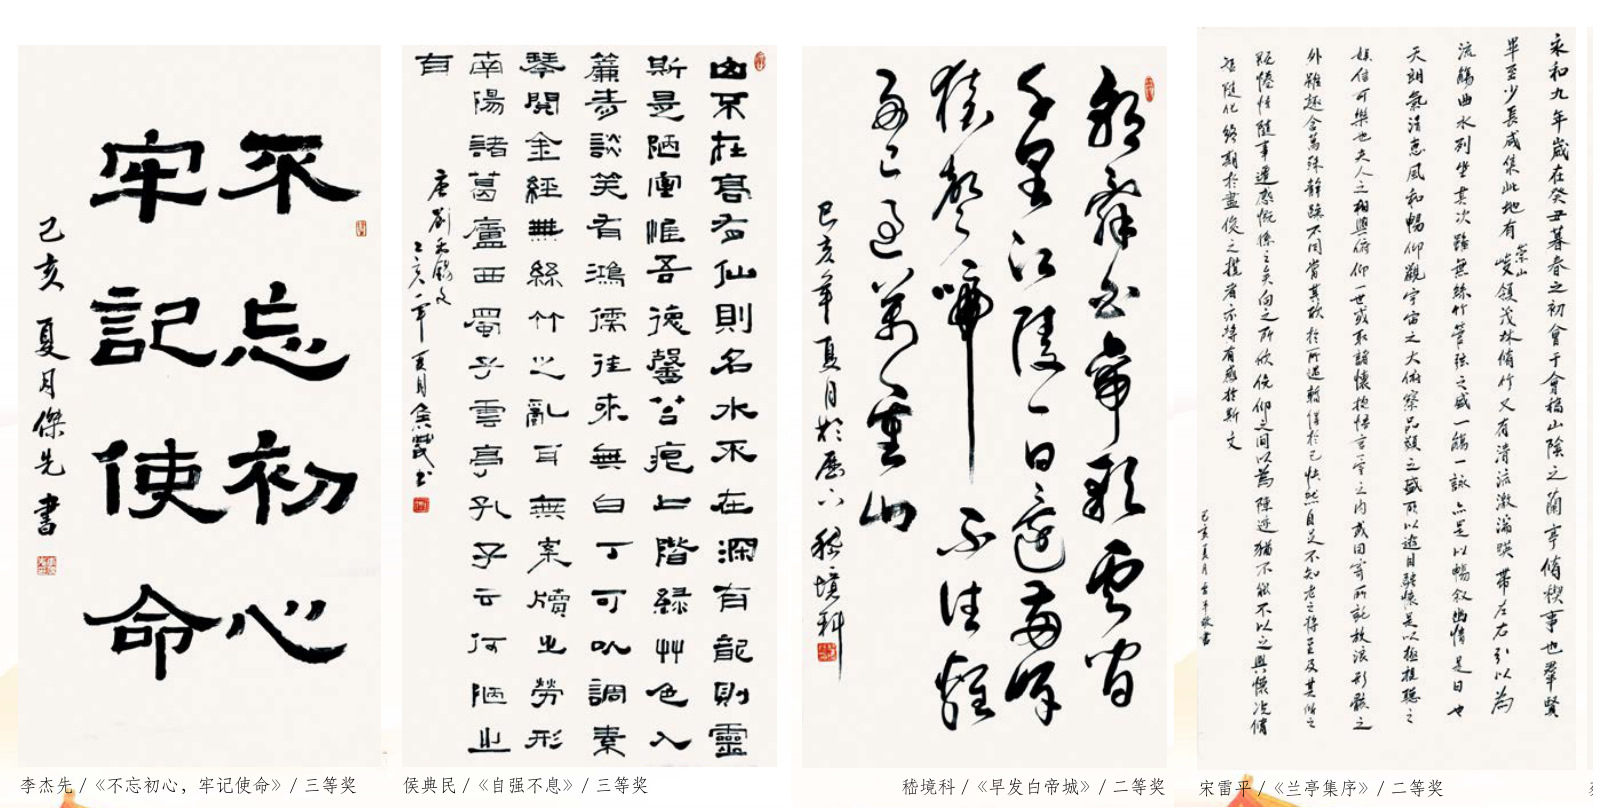 不忘初心
牢記使命
己亥夏月傑先書
李杰先 /《不忘初心，牢记使命》/ 三等奖
山不在高有仙則名水不在深有龍則靈
斯是陋室惟吾德馨苔痕上階緑艸色入
簾青談笑有鴻儒往来無白丁可以調素
琴閲金經無絲竹之亂耳無案牘之勞形
南陽諸葛廬西蜀子雲亭孔子云何陋之
有
唐劉禹錫文
己亥年夏月侯民书
侯典民 /《自强不息》/ 三等奖
朝辭白帝彩雲間
千里江陵一日還兩岸
猿聲啼不住輕
舟已過萬重山
己亥年夏月於歷下嵇境科
嵇境科 /《早发白帝城》/ 二等奖
永和九年歲在癸丑暮春之初會于會稽山陰之蘭亭脩禊事也羣賢
畢至少長咸集此地有崇山峻領茂林脩竹又有清流激湍暎帶左右引以為
流觴曲水列坐其次雖無絲竹管弦之盛一觴一詠亦足以暢叙幽情是日也
天朗氣清惠風和暢仰觀宇宙之大俯察品類之盛所以遊目騁懷足以極視聽之
娛信可樂也夫人之相與俯仰一世或取諸懷抱悟言一室之内或因寄所託放浪形骸之
外雖趣舍萬殊靜躁不同當其欣於所遇暫得於己快然自足不知老之將至及其所之
既惓情隨事遷感慨係之矣向之所欣俛仰之間以為陳迹猶不能不以之興懷況脩
短隨化終期於盡後之攬者亦將有感於斯文
己亥夏月雷平敬書
宋雷平 /《兰亭集序》/ 二等奖